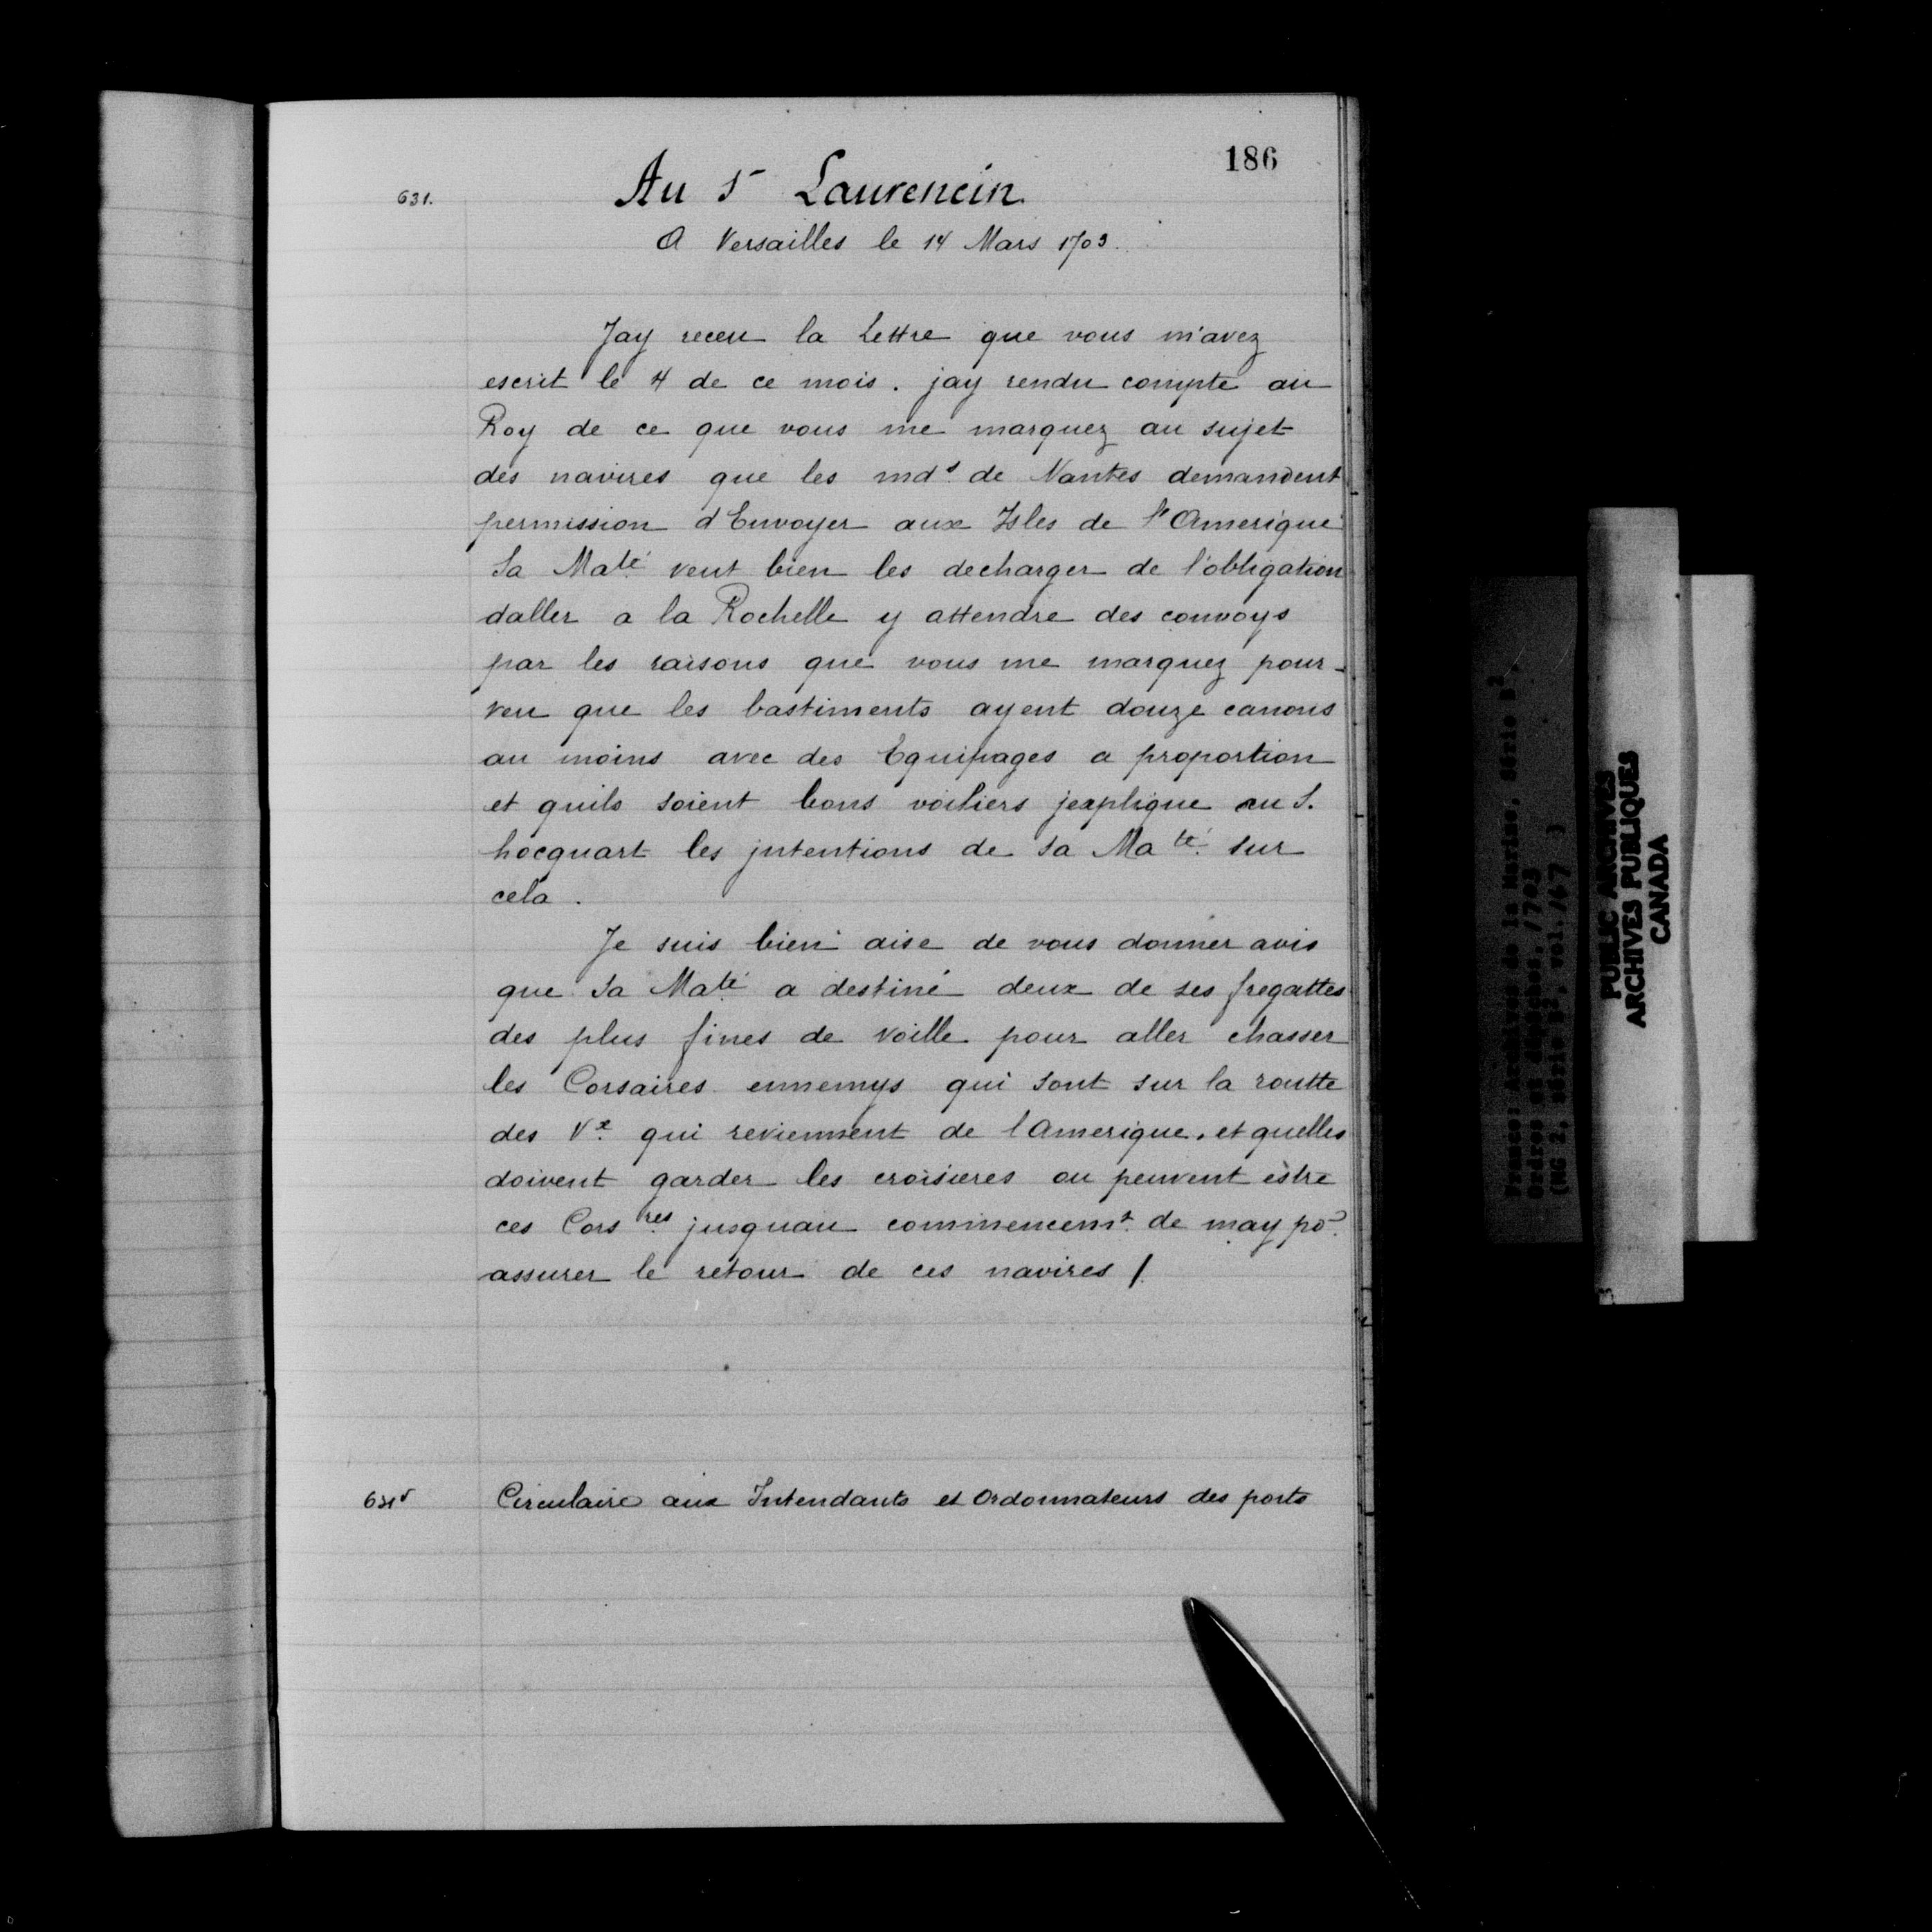 186
631.
Au Sr Laurencin.
A Versailles le 14 Mars 1703.
Jay receu la Lettre que vous m'avez
escrit le 4 de ce mois. jay rendu compte au
Roy de ce que vous me marquez au sujet
des navires que les mds de Nantes demandent
permission d'Envoyer aux Isles de l'Amerique
Sa Maté veut bien les decharger de l'obligation
daller a la Rochelle y attendre des convoys
par les raisons que vous me marquez pour-
veu que les bastiments ayent douze canons
au moins avec des Equipages a proportion
et quils soient bons voiliers jexplique au S.
hocquart les jntentions de sa Maté sur
cela.
Je suis bien aise de vous donner avis
que sa Maté a destiné deux de ses fregattes
des plus fines de voille pour aller chasser
les Corsaires ennemys qui sont sur la routte
des Vx qui reviennent de l'Amerique. et quelles
doivent garder les croisieres ou peuvent estre
ces Corsres jusquau commencemt de may po
assurer le retour de ces navires /.
631v
Circulaire aux Intendants et Ordonnateurs des ports
France: Archives de la Marine, Série B2,
Ordres et dépêches, 1703
(MG 2, série B2, vol. 167 )
PUBLIC ARCHIVES
ARCHIVES PUBLIQUES
CANADA